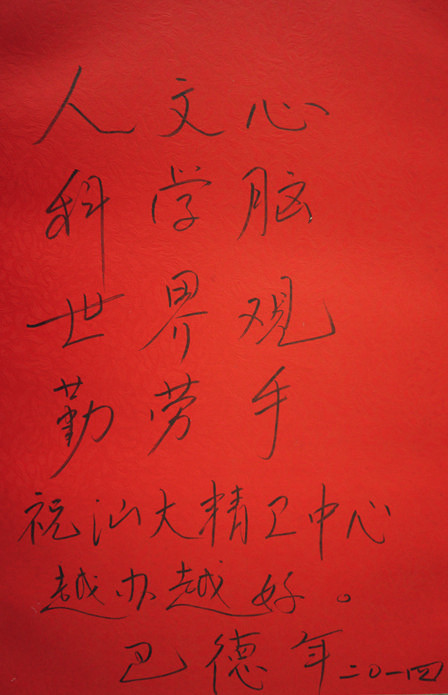 人文心
科学脑
世界观
勤劳手
祝汕大精卫中心
越办越好。
巴德年 二〇一四